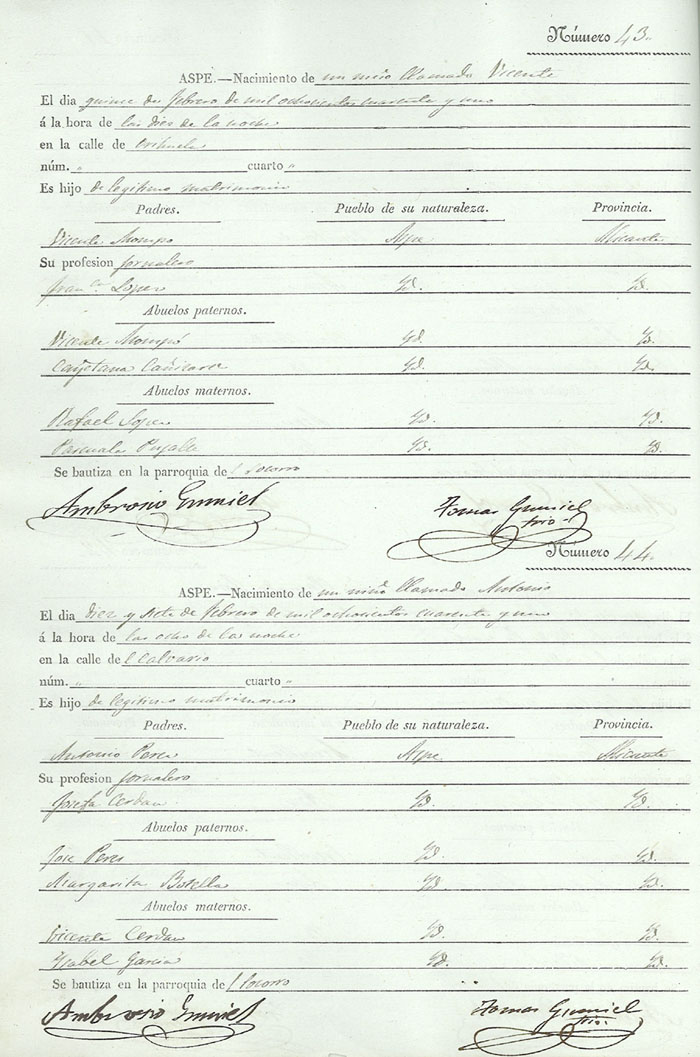 Número 43.
ASPE.—Nacimiento de un niño llamado Vicente
El dia quince de febrero de mil ochocientos cuarenta y uno
á la hora de las diez de la noche
en la calle de Orihuela
núm. „ cuarto „
Es hijo de legitimo matrimonio
Padres. Pueblo de su naturaleza. Provincia.
Vicente Mompó Aspe Alicante
Su profesion jornalero
Fran.ca Lopez Yd. Yd.
Abuelos paternos.
Vicente Mompó Yd. Yd.
Cayetana Cañizares Yd. Yd.
Abuelos maternos.
Rafael Lopez Yd. Yd.
Pascuala Yd. Yd.
Se bautiza en la parroquia del Socorro
Ambrosio Gumiel Tomas Gumiel
Srio.
Número 44.
ASPE.—Nacimiento de un niño llamado Antonio
El dia diez y siete de febrero de mil ochocientos cuarenta y uno
á la hora de las ocho de la noche
en la calle del Calvario
núm. „ cuarto „
Es hijo de legitimo matrimonio
Padres. Pueblo de su naturaleza. Provincia.
Antonio Perez Aspe Alicante
Su profesion jornalero
Josefa Cerdan Yd. Yd.
Abuelos paternos.
Jose Perez Yd. Yd.
Margarita Botella Yd. Yd.
Abuelos maternos.
Vicente Cerdan Yd. Yd.
Ysabel Garcia Yd. Yd.
Se bautiza en la parroquia del Socorro
Ambrosio Gumiel Tomas Gumiel
Srio.